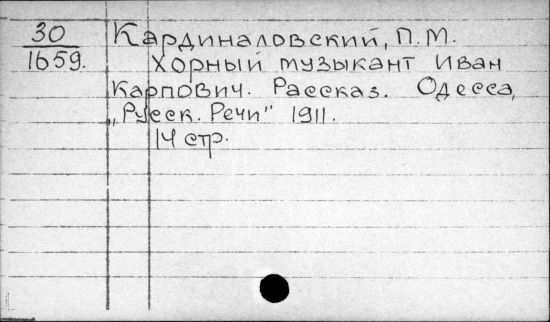 30
1659.
Кардиналовский, П.М.
Хорный музыкант Иван
Карпович. Рассказ. Одесса,
„Русск. Речи" 1911.
14 стр.